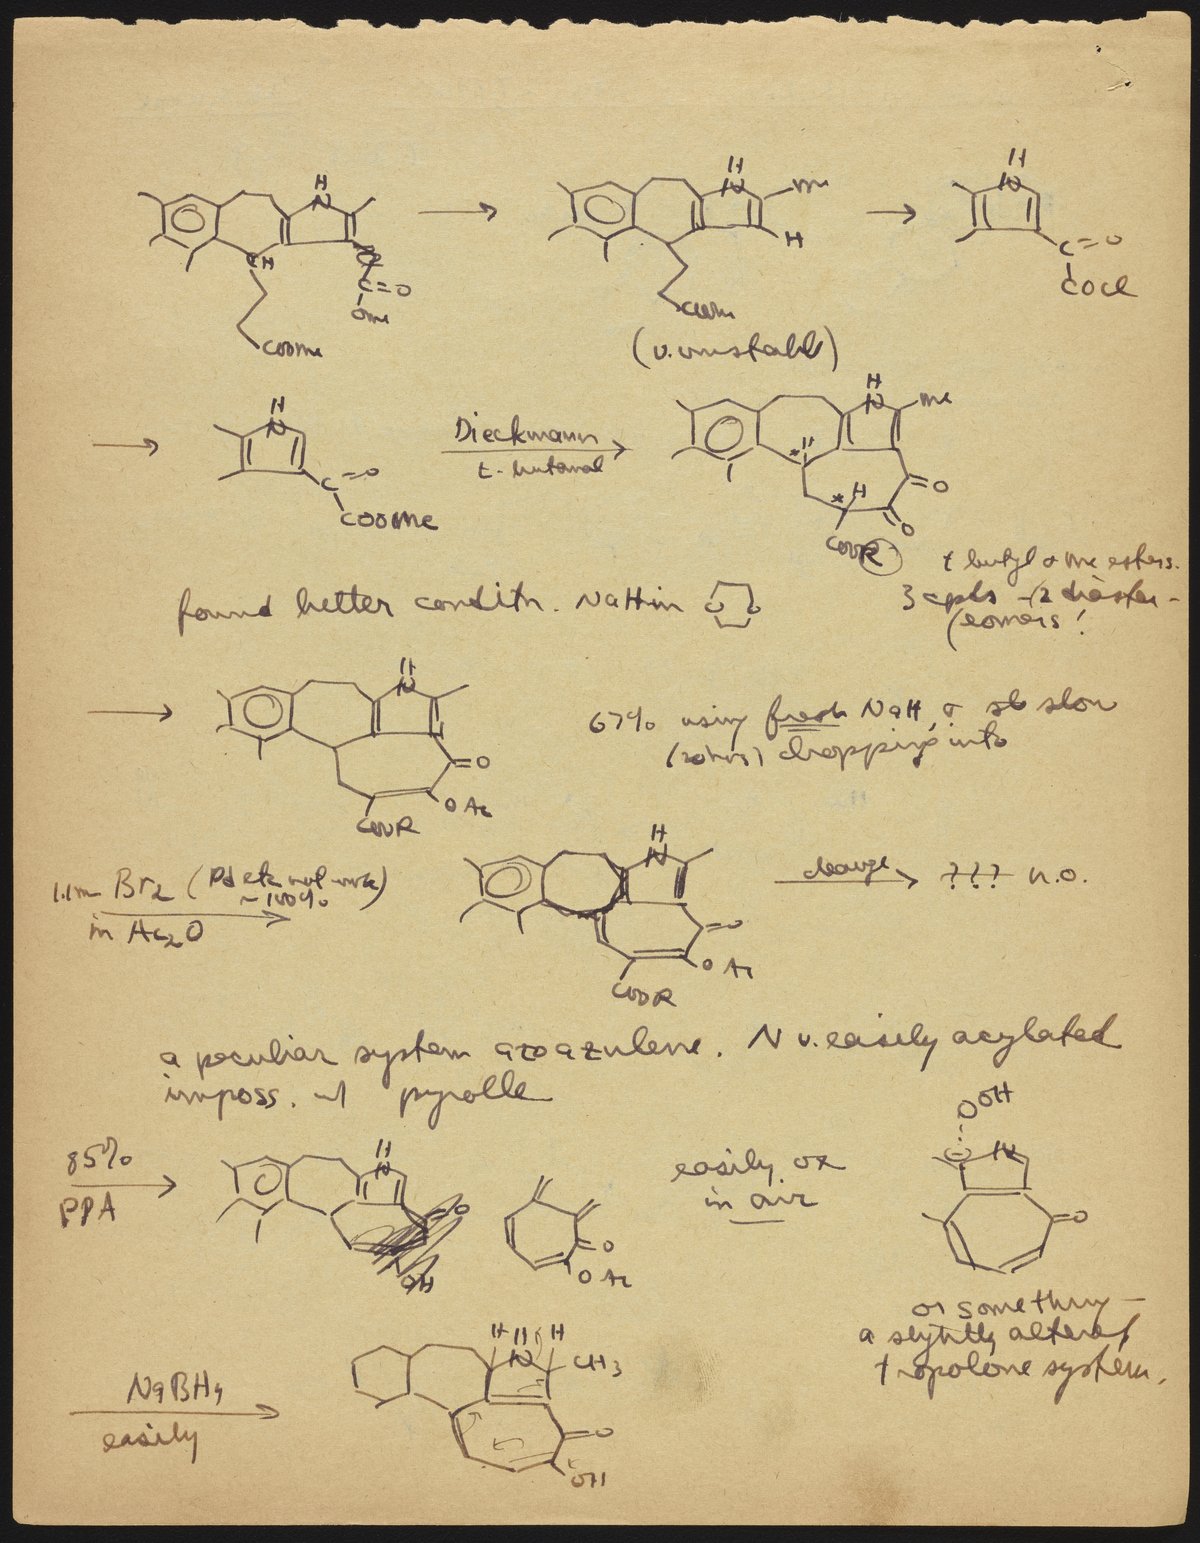 H
N
CH
C=O
OMe
COOMe
H
N
Me
H
COOMe
(v. unstable)
H
N
C=O
COCl
H
N
C=O
COOMe
Dieckmann
t-butanol
H
N
Me
* H
* H
O
O
COOR
t butyl & me esters.
3 cpds - (2 diaster-
(eomers!
found better conditn. NaH in O O
H
N
O
OAc
COOR
67% using fresh NaH, & slow
(20 hrs) dropping into
1.1m Br2 (Pd etc not work)
~100%
in Ac2O
H
N
O
OAc
COOR
??? n.o.
a peculiar system azoazulene. N v. easily acylated
imposs. w/ pyrolle
85%
PPA
H
N
O
OH
O
OAc
easily ox
in air
OOH
N
O
or something -
a slightly altered
tropolone system.
NaBH4
easily
H H H
N
CH3
O
OH